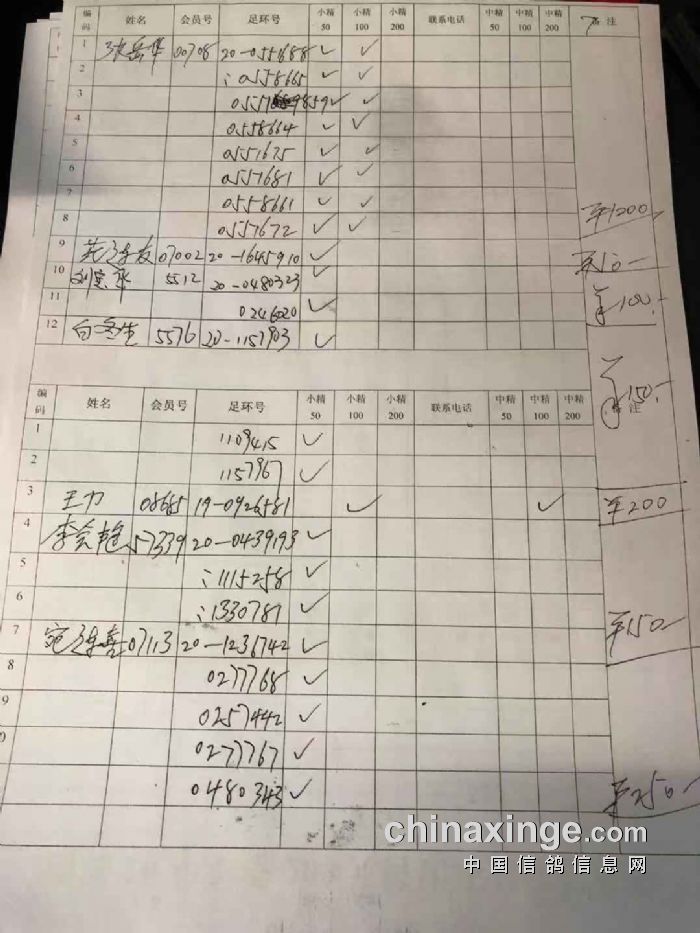 编码 姓名 会员号 足环号 小精50 小精100 小精200 联系电话 中精50 中精100 中精200 备注
1 张岳华 00708 20-0551688 ✓ ✓
2 :0558665 ✓ ✓
3 9859 ✓ ✓
4 0558664 ✓ ✓
5 0551675 ✓ ✓
6 0557681 ✓ ✓
7 0558661 ✓ ✓
8 0557672 ✓ ✓ ¥1200
9 07002 20-1645910 ✓ ¥50-
10 5512 20-0480323 ✓
11 0246020 ✓ ¥100.-
12 5576 20-1157903 ✓
¥150.-
编码 姓名 会员号 足环号 小精50 小精100 小精200 联系电话 中精50 中精100 中精200 备注
1 1109415 ✓
2 1157967 ✓
3 王力 08685 19-0926581 ✓ ✓ ¥200
4 57339 20-0439193 ✓
5 :1115258 ✓
6 :1330781 ✓ ¥150-
7 07113 20-1236742 ✓
8 0277768 ✓
9 0257442 ✓
0 0277767 ✓
0480343 ✓ ¥250-
chinaxinge.com
中国信鸽信息网